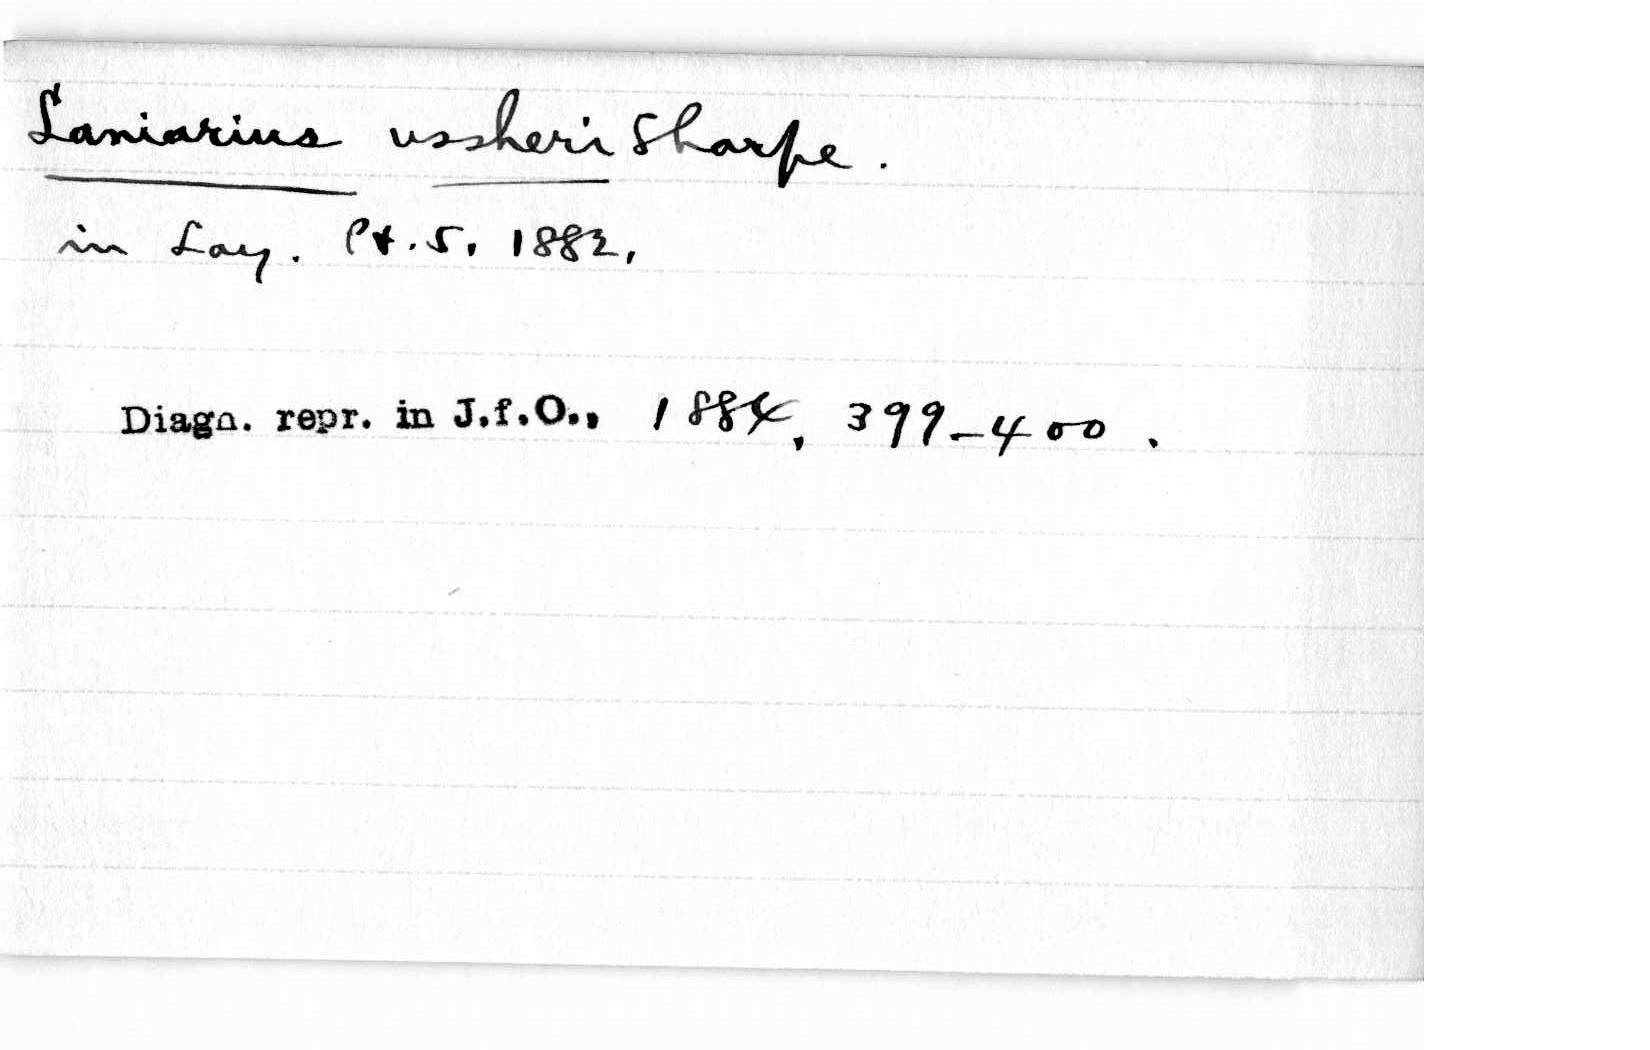 Laniarius ussheri Sharpe.
in Lay. Pt. 5, 1882,
Diagn. repr. in J.f.O., 1884, 399-400.